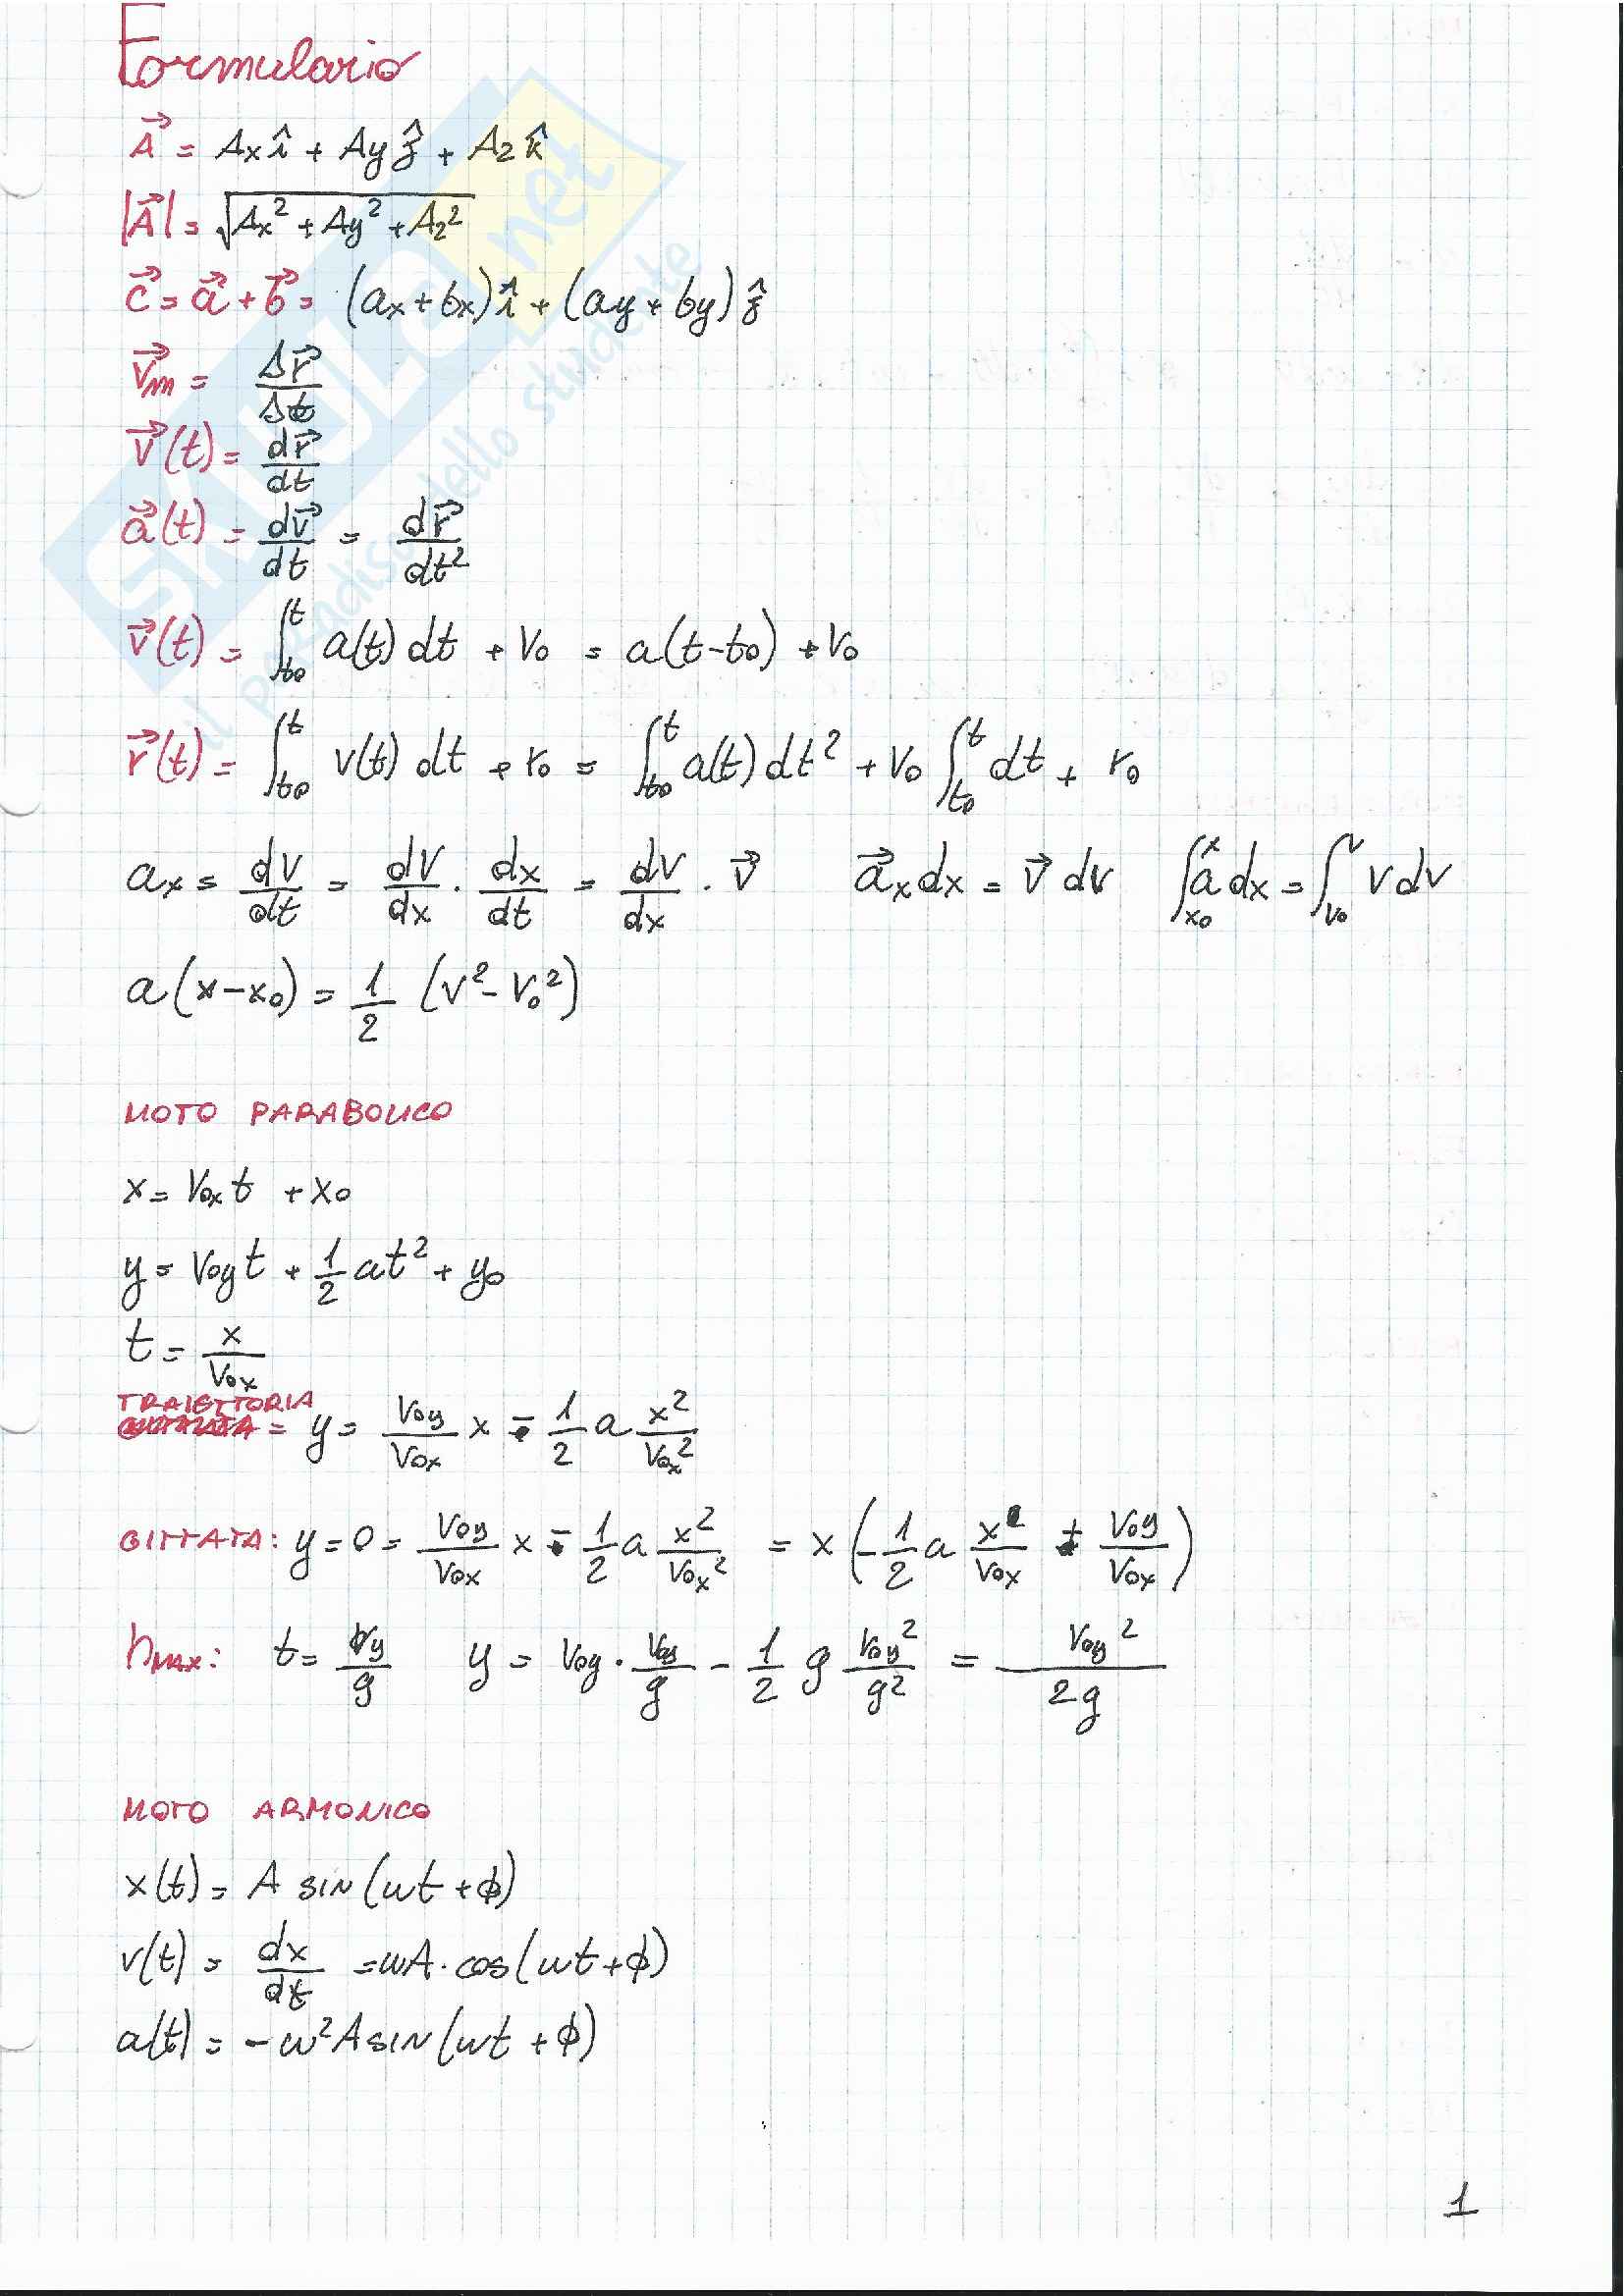 Formulario
\vec{A} = Ax î + Ay ĵ + Az k̂
|\vec{A}| = √(Ax² + Ay² + Az²)
\vec{c} = \vec{a} + \vec{b} = (ax + bx) î + (ay + by) ĵ
\vec{v}m = Δ\vec{r} / Δt
\vec{v}(t) = d\vec{r} / dt
\vec{a}(t) = d\vec{v} / dt = d\vec{r} / dt²
\vec{v}(t) = ∫_{t0}^{t} a(t) dt + v0 = a(t-t0) + v0
\vec{r}(t) = ∫_{t0}^{t} v(t) dt + r0 = ∫_{t0}^{t} a(t) dt² + v0 ∫_{t0}^{t} dt + r0
ax = dv/dt = dv/dx · dx/dt = dv/dx · \vec{v} \vec{a}x dx = \vec{v} dv ∫_{x0}^{x} a dx = ∫_{v0}^{v} v dv
a(x-x0) = 1/2 (v² - v0²)
MOTO PARABOLICO
x = v0x t + x0
y = v0y t + 1/2 at² + y0
t = x / v0x
TRAIETTORIA = y = v0y/v0x x - 1/2 a x²/v0x²
GITTATA: y = 0 = v0y/v0x x - 1/2 a x²/v0x² = x(-1/2 a x/v0x + v0y/v0x)
hMAX: t = vy/g y = v0y · v0y/g - 1/2 g v0y²/g² = v0y²/2g
MOTO ARMONICO
x(t) = A sin(ωt + ϕ)
v(t) = dx/dt = ωA · cos(ωt + ϕ)
a(t) = -ω²A sin(ωt + ϕ)
1
SKUOLA.net
il paradiso dello studente